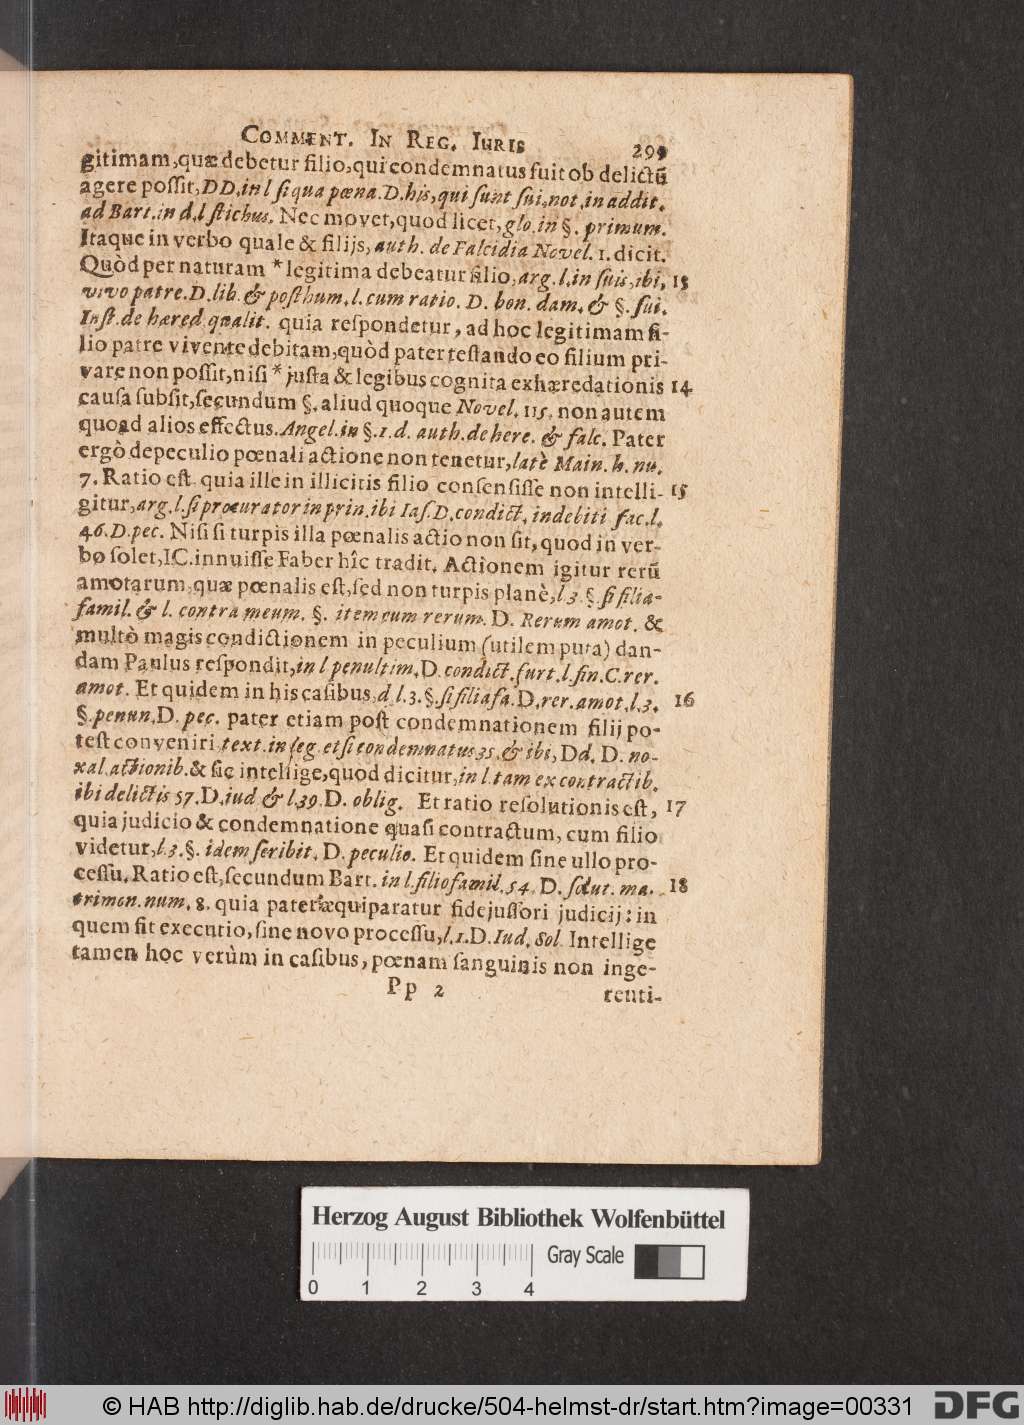 COMMENT. IN REG. IURIS 299
gitimam,quæ debetur filio,qui condemnatus fuit ob delictũ
agere possit,DD.in l si qua pœna.D.his,qui sunt sui,not.in addit.
ad Bart.in d.l stichus. Nec movet,quod licet,glo.in §. primum.
Itaque in verbo quale & filijs,auth. de Falcidia Novel.1.dicit.
Quòd per naturam *legitima debeatur filio,arg.l.in suis,ibi, 13
vivo patre.D.lib.& posthum.l.cum ratio. D. bon. dam.& §. sui.
Inst.de hæred.qualit. quia respondetur, ad hoc legitimam fi-
lio patre vivente debitam,quòd pater testando eo filium pri-
vare non possit,nisi * justa & legibus cognita exhæredationis 14
causa subsit,secundum §.aliud quoque Novel.115.non autem
quoad alios effectus.Angel.in §.1.d. auth.de here. & falc. Pater
ergò de peculio pœnali actione non tenetur,latè Main.h.nu.
7. Ratio est quia ille in illicitis filio consensisse non intelli- 15
gitur,arg.l.si procurator in prin.ibi Ias.D.condict.indebiti fac.l.
46.D.pec. Nisi si turpis illa pœnalis actio non sit,quod in ver-
bo solet,IC.innuisse Faber hîc tradit. Actionem igitur rerũ
amotarum,quæ pœnalis est,sed non turpis planè,l 3.§.si filia-
famil.& l. contra meum. §. item cum rerum. D. Rerum amot. &
multò magis condictionem in peculium (utilem puta) dan-
dam Paulus respondit,in l penultim.D.condict.furt.l.fin.C.rer.
amot. Et quidem in his casibus,d.l.3.§.si filiafa.D.rer.amot.l.3. 16
§.penun.D.pec. pater etiam post condemnationem filij po-
test conveniri text.in leg.etsi condemnatus 35.& ibi,Dd.D.no-
xal.actionib.& sic intellige,quod dicitur,in l.tam ex contractib.
ibi delictis 57.D.iud & l.39.D. oblig. Et ratio resolutionis est, 17
quia judicio & condemnatione quasi contractum, cum filio
videtur,l.3.§. idem scribit.D.peculio. Et quidem sine ullo pro-
cessu.Ratio est,secundum Bart.in l.filiofamil.54.D.solut.ma- 18
trimon.num.8. quia pater æquiparatur fidejussori judicij: in
quem fit executio,sine novo processu,l.1.D.Iud.Sol. Intellige
tamen hoc verùm in casibus, pœnam sanguinis non inge-
Pp 2 renti-
Herzog August Bibliothek Wolfenbüttel
Gray Scale
0 1 2 3 4
© HAB http://diglib.hab.de/drucke/504-helmst-dr/start.htm?image=00331 DFG